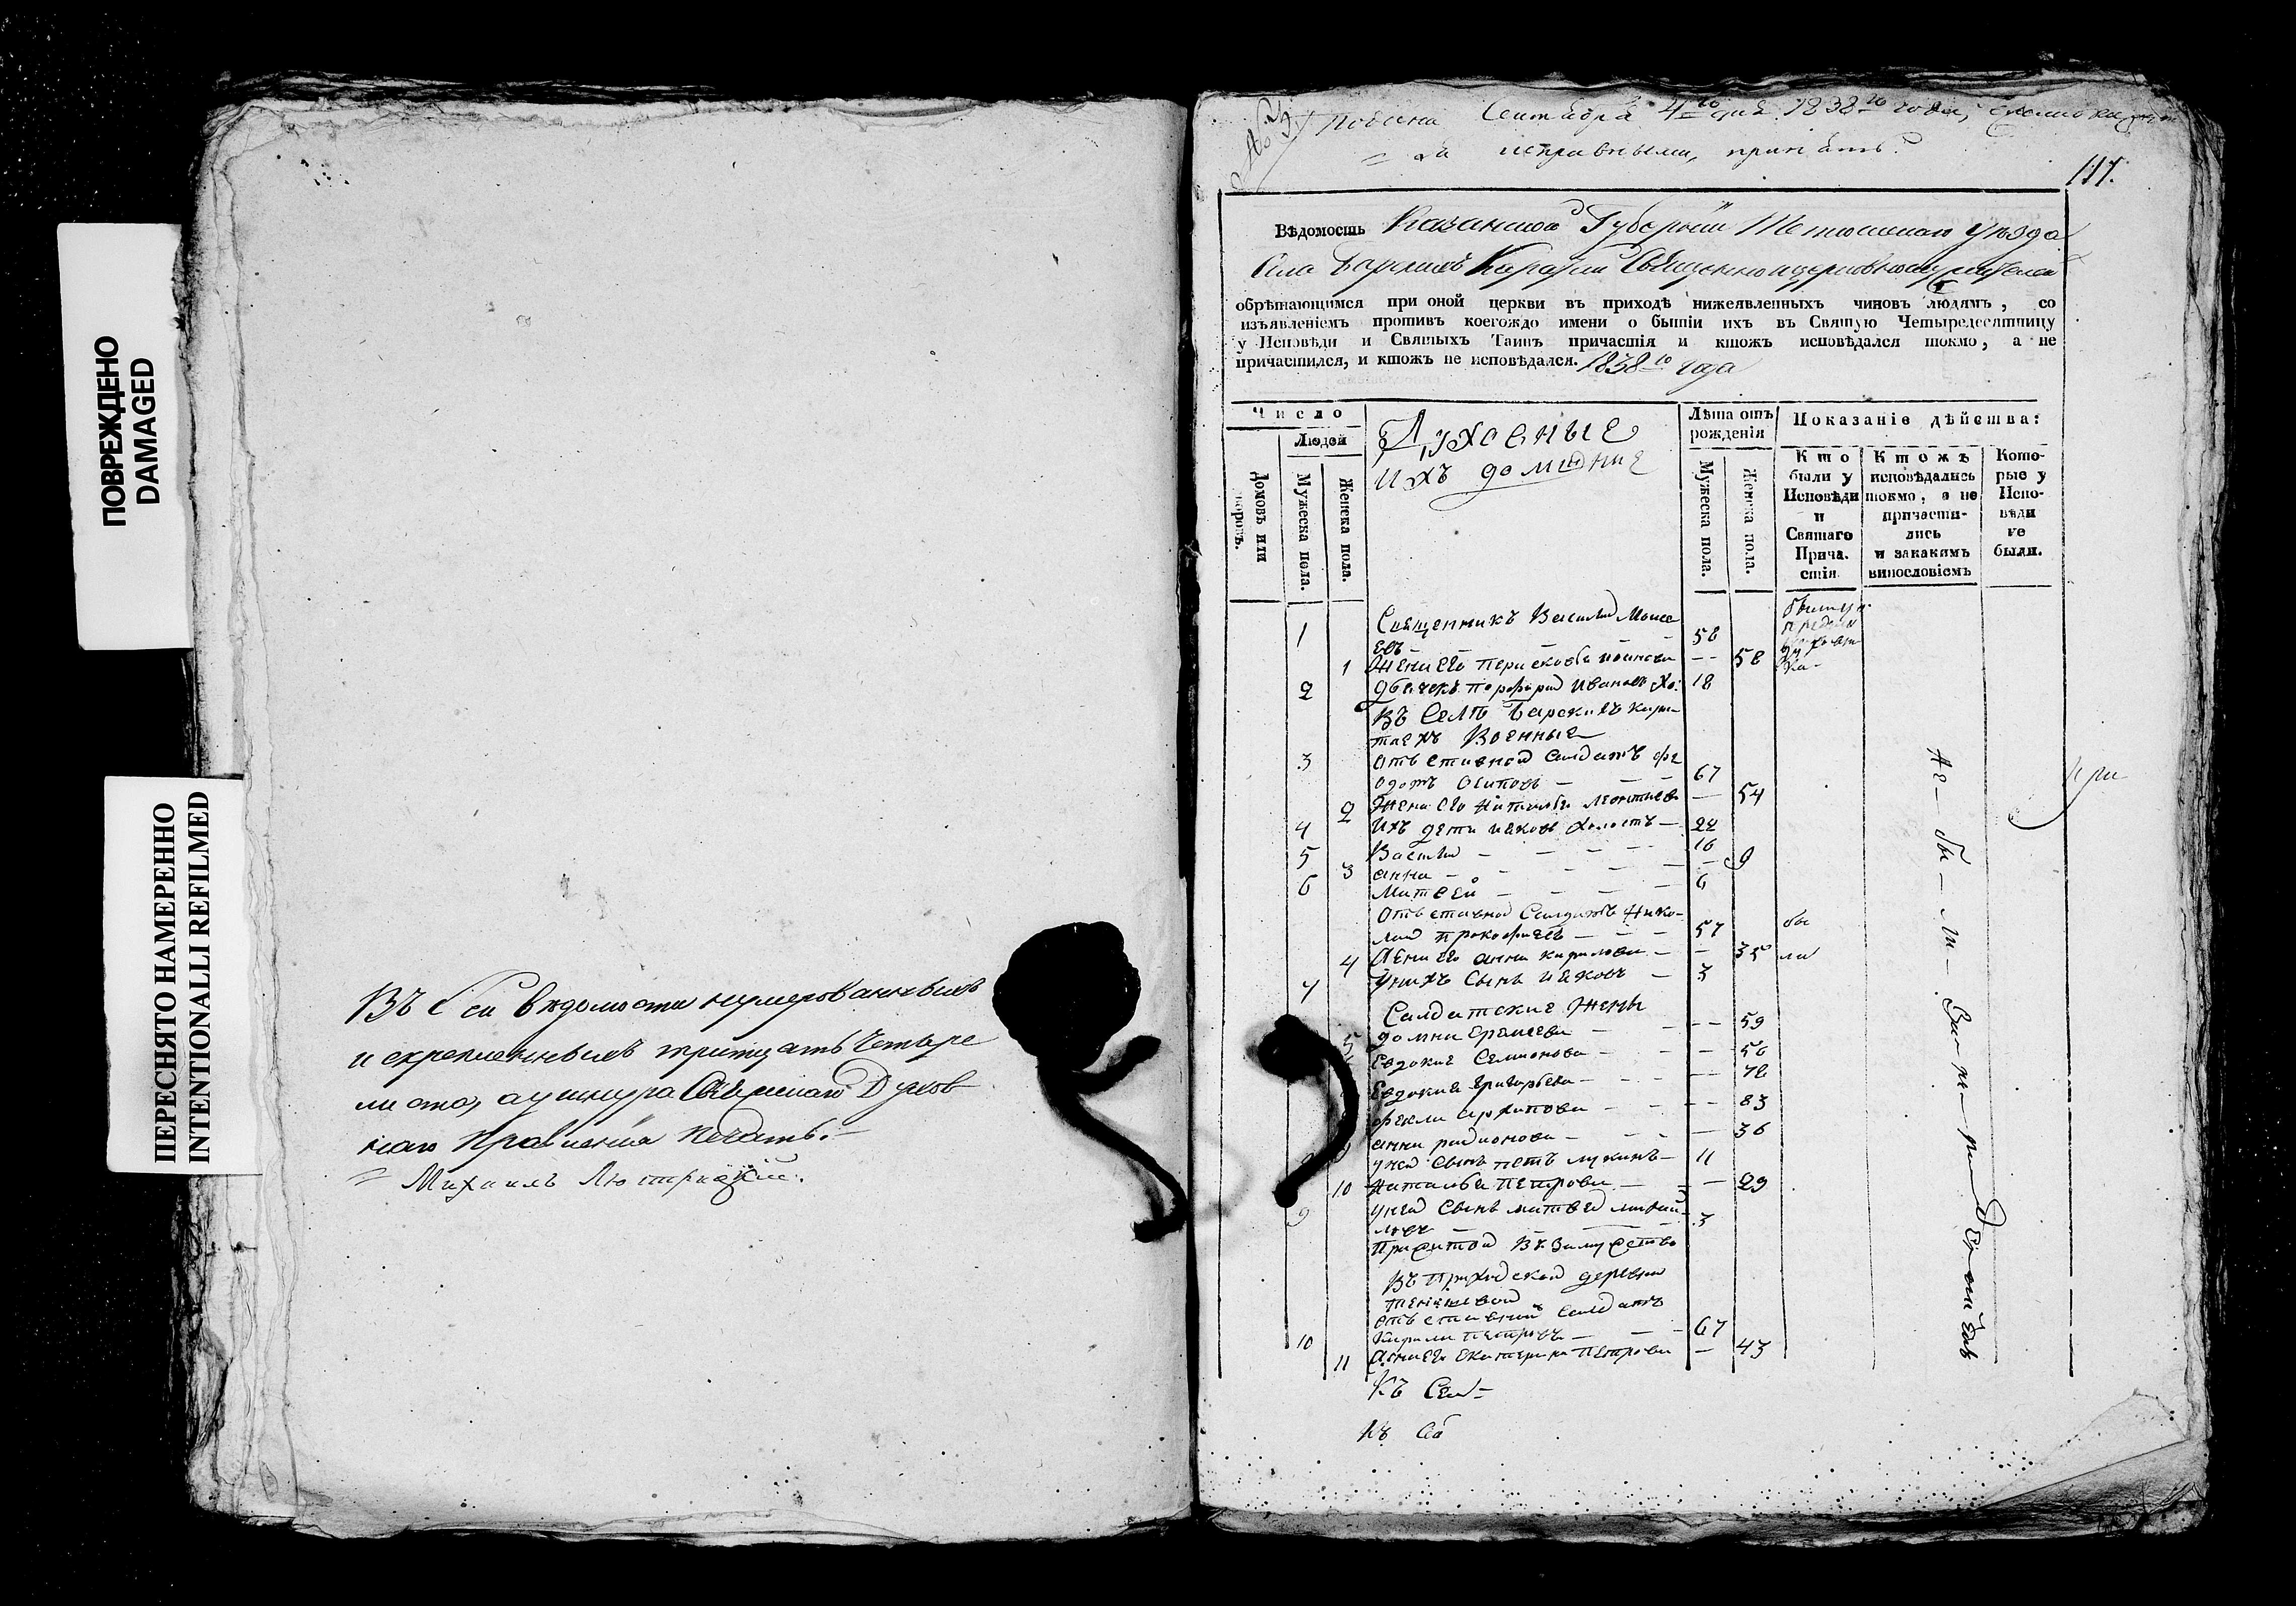 ПОВРЕЖДЕНО
DAMAGED
ПЕРЕСНЯТО НАМЕРЕННО
INTENTIONALLI REFILMED
Въ сей ведомости нумерованныхъ
и скрепленныхъ тритцать четыре
листа, а у шнура Духов
наго Правления печать.
Михаилъ
Подана Сентября 4го дня 1838го года,
за исправными, принять.
111.
Вѣдомость Казанской Губернїи Тетюшскаго уѣзда
Села Барскихъ Каратай Священноицерковнослужителей
обрѣтающимся при оной церкви въ приходѣ нижеявленныхъ чиновъ людямъ, со
изъявленіемъ противъ коегождо имени о бытіи ихъ въ Святую Четыредесятницу
у Исповѣди и Святыхъ Таинъ причастія и ктожъ исповѣдался токмо, а не
причастился, и ктожъ не исповѣдался. 1838го года
Число
Людей
Домовъ или дворовъ.
Мужеска пола.
Женска пола.
Духовные
ихъ домашние
Лѣта отъ рожденія
Мужеска пола.
Женска пола.
Показаніе дѣйства:
Кто были у Исповѣди и Святаго Прича- стія
Ктожъ исповѣдались токмо, а не причасти- лись и закакимъ винословіемъ
Кото- рые у Испо- вѣди не были.
1 Священникъ Василий Моисе
евъ — — — 58
1 Жена его Парасковья — 58
2 Дьячекъ Порфирий Ивановъ Хо: 18
Въ Селѣ Барскихъ Кара
таехъ Военные
3 Отъставной Салдатъ Фе
одотъ Осиповъ — 67
2 Жена его Наталья Леонтьева — 54
4 Ихъ дети Иаковъ холостъ — 22
5 Василий — — — 16
3 Анна — — — 9
6 Матвей — — — 6
Отъставной Салдатъ Нико-
лай Прокофьевъ — — 57 бы
4 Жена его Анна Кирилова — 35 ли
7 У нихъ сынъ Иаковъ — 3
Салдатские Жены
5 Домна Еремеева — — 59
Евдокия Семионова — — 56
Евдокия Григорьева — — 72
Фекла Архипова — — 83
Анна Радионова — — 36
у ней сынъ Петъ Лукинъ — 11
10 Наталья Петрова — — 29
9 у ней сынъ Матвей Михай-
ловъ — — 3
Въ Приходской деревни
отъставний Салдатъ
10 Петровъ — — 67
11 Жена его Екатерина Петрова — 43
Не — бы — ли
Къ Сей
Къ Се
при